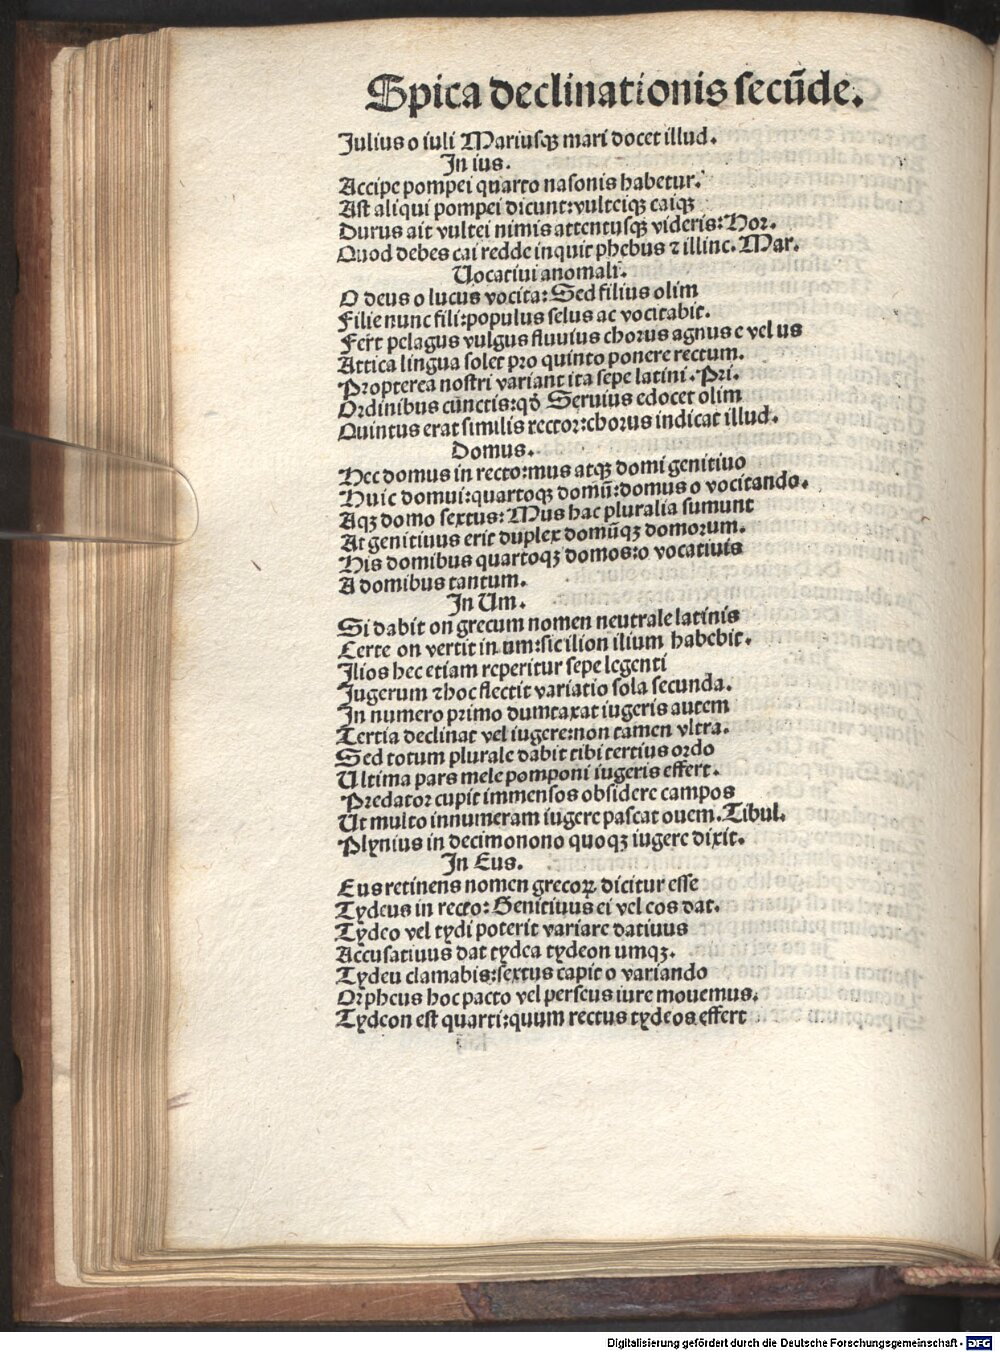 Spica declinationis secūde.
Julius o iuli Mariusqꝫ mari docet illud.
In ius.
Accipe pompei quarto nasonis habetur.
Ast aliqui pompei dicunt:vulteiqꝫ caiqꝫ
Durus ait vultei nimis attentusqꝫ videris: Hor.
Quod debes cai redde inquit phebus ⁊ illinc. Mar.
Uocatiui anomali.
O deus o lucus vocita: Sed filius olim
Filie nunc fili:populus selus ac vocitabit.
Fert pelagus vulgus fluuius chorus agnus e vel us
Attica lingua solet pro quinto ponere rectum.
Propterea nostri variant ita sepe latini. Pri.
Ordinibus cūnctis:qđ Seruius edocet olim
Quintus erat similis rector:chorus indicat illud.
Domus.
Hec domus in recto:mus atqꝫ domi genitiuo
Huic domui:quartoqꝫ domū:domus o vocitando.
Aqꝫ domo sextus: Mus hac pluralia sumunt
At genitiuus erit duplex domūqꝫ domorum.
His domibus quartoqꝫ domos:o vocatiuis
A domibus tantum.
In Um.
Si dabit on grecum nomen neutrale latinis
Certe on vertit in um:sic ilion ilium habebit.
Ilios hec etiam reperitur sepe legenti
Jugerum ⁊ hoc flectit variatio sola secunda.
In numero primo dumtaxat iugeris autem
Tertia declinat vel iugere:non tamen vltra.
Sed totum plurale dabit tibi tertius ordo
Ultima pars mele pomponi iugeris effert.
Predator cupit immensos obsidere campos
Ut multo innumeram iugere pascat ouem. Tibul.
Plynius in decimonono quoqꝫ iugere dixit.
In Eus.
Eus retinens nomen grecoꝝ dicitur esse
Tydeus in recto: Genitiuus ei vel eos dat.
Tydeo vel tydi poterit variare datiuus
Accusatiuus dat tydea tydeon umqꝫ.
Tydeu clamabis:sextus capit o variando
Orpheus hoc pacto vel perseus iure mouemus.
Tydeon est quarti:quum rectus tydeos effert
Digitalisierung gefördert durch die Deutsche Forschungsgemeinschaft - DFG